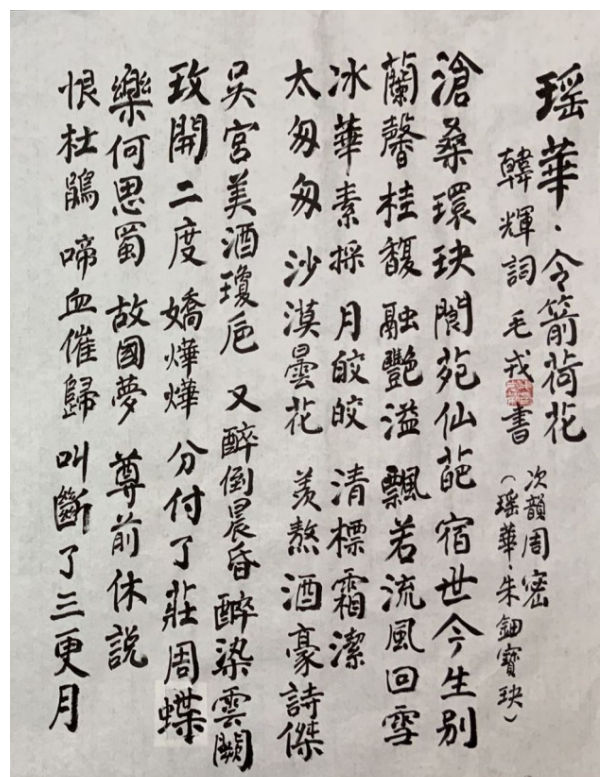 瑶華·令箭荷花
韓輝詞 毛戎書
次韻周密
(瑶華·朱鈿寶玦)
滄桑環玦 閬苑仙葩 宿世今生别
蘭馨桂馥 融艷溢 飄若流風回雪
冰華素採 月皎皎 清標霜潔
太匆匆 沙漠曇花 羡熬酒豪詩傑
吳宮美酒瓊卮 又醉倒晨昏 醉染雲闕
玫開二度 嬌燁燁 分付了莊周蝶
樂何思蜀 故國夢 尊前休説
恨杜鵑 啼血催歸 叫斷了三更月